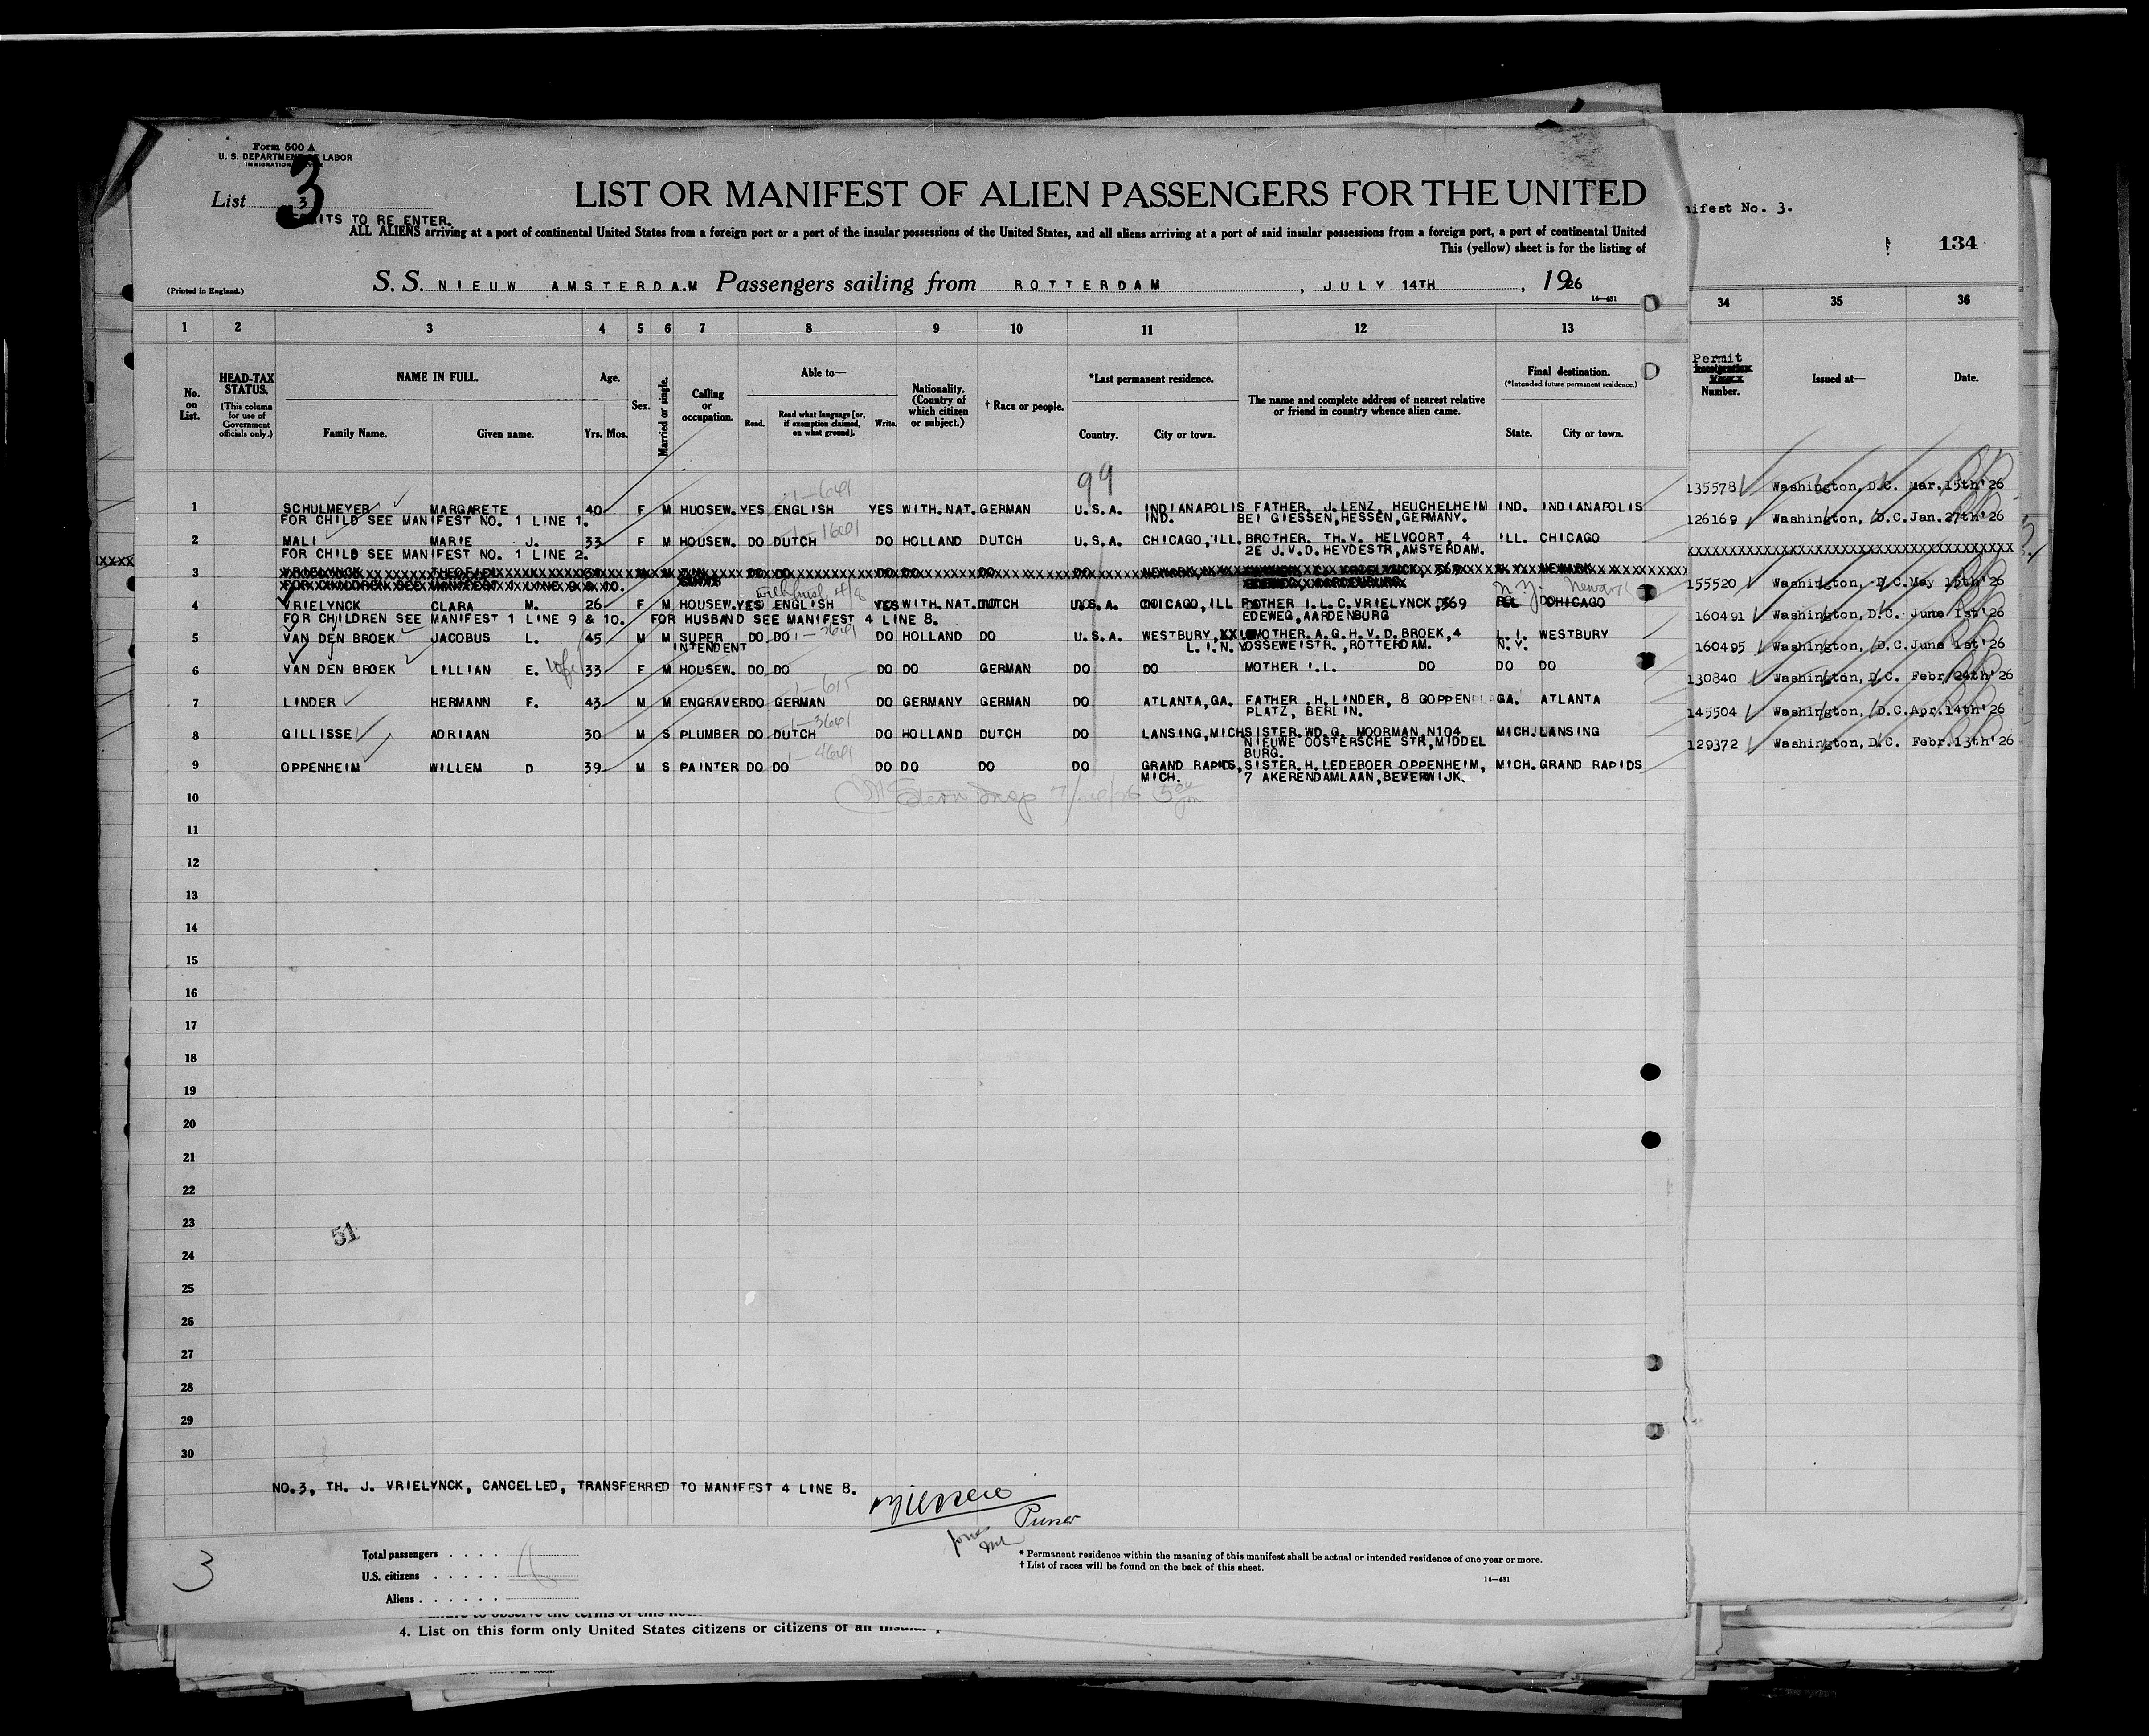 Form 500 A
U. S. DEPARTMENT OF LABOR
IMMIGRATION
List 3
3
ITS TO RE ENTER.
LIST OR MANIFEST OF ALIEN PASSENGERS FOR THE UNITED
ALL ALIENS arriving at a port of continental United States from a foreign port or a port of the insular possessions of the United States, and all aliens arriving at a port of said insular possessions from a foreign port, a port of continental United
This (yellow) sheet is for the listing of
(Printed in England.)
S. S. NIEUW AMSTERDAM Passengers sailing from ROTTERDAM, JULY 14TH, 1926
14—431
nifest No. 3.
134
1 2 3 4 5 6 7 8 9 10 11 12 13 34 35 36
No. on List.
HEAD-TAX STATUS.
(This column for use of Government officials only.)
NAME IN FULL.
Family Name. Given name.
Age.
Yrs. Mos.
Sex.
Married or single.
Calling or occupation.
Able to—
Read. Read what language [or, if exemption claimed, on what ground]. Write.
Nationality. (Country of which citizen or subject.)
† Race or people.
*Last permanent residence.
Country. City or town.
The name and complete address of nearest relative or friend in country whence alien came.
Final destination.
(*Intended future permanent residence.)
State. City or town.
Permit
Number.
Issued at—
Date.
99
1—6491
1 SCHULMEYER MARGARETE 40 F M HUOSEW. YES ENGLISH YES WITH.NAT. GERMAN U.S.A. INDIANAPOLIS FATHER. J.LENZ. HEUCHELHEIM IND. INDIANAPOLIS 135578 Washington, D.C. Mar.15th'26
FOR CHILD SEE MANIFEST NO. 1 LINE 1. IND. BEI GIESSEN,HESSEN,GERMANY.
2 MALI MARIE J. 33 F M HOUSEW. DO DUTCH DO HOLLAND DUTCH U.S.A. CHICAGO, ILL. BROTHER. TH.V. HELVOORT, 4 ILL. CHICAGO 126169 Washington, D.C. Jan.27th'26
FOR CHILD SEE MANIFEST NO. 1 LINE 2. 2E J.V.D.HEYDESTR,AMSTERDAM.
3 VRIELYNCK
4 VRIELYNCK CLARA M. 26 F M HOUSEW. YES ENGLISH YES WITH.NAT. DUTCH U.S.A. CHICAGO, ILL MOTHER I.L.C.VRIELYNCK, 369 CHICAGO N.Y. Newark 155520 Washington, D.C. May 15th'26
FOR CHILDREN SEE MANIFEST 1 LINE 9 & 10. FOR HUSBAND SEE MANIFEST 4 LINE 8. EDEWEG,AARDENBURG
5 VAN DEN BROEK JACOBUS L. 45 M M SUPER DO DO DO HOLLAND DO U.S.A. WESTBURY, MOTHER.A.G.H.V.D.BROEK,4 L.I. WESTBURY 160491 Washington, D.C. June 1st'26
INTENDENT L.I.N.Y. OSSEWEISTR.,ROTTERDAM. N.Y.
6 VAN DEN BROEK LILLIAN E. wife 33 F M HOUSEW. DO DO DO DO GERMAN DO DO MOTHER I.L. DO DO DO 160495 Washington, D.C. June 1st'26
7 LINDER HERMANN F. 43 M M ENGRAVER DO GERMAN DO GERMANY GERMAN DO ATLANTA,GA. FATHER .H.LINDER, 8 GOPPEN GA. ATLANTA 130840 Washington, D.C. Febr.24th'26
PLATZ, BERLIN.
8 GILLISSE ADRIAAN 30 M S PLUMBER DO DUTCH DO HOLLAND DUTCH DO LANSING,MICH SISTER.WD.G. MOORMAN,N104 MICH. LANSING 145504 Washington, D.C. Apr.14th'26
NIEUWE OOSTERSCHE STR,MIDDEL
BURG.
9 OPPENHEIM WILLEM D 39 M S PAINTER DO DO DO DO DO DO GRAND RAPIDS, SISTER.H.LEDEBOER OPPENHEIM, MICH. GRAND RAPIDS 129372 Washington, D.C. Febr.13th'26
MICH. 7 AKERENDAMLAAN,BEVERWIJK.
10
11
12
13
14
15
16
17
18
19
20
21
22
23
51
24
25
26
27
28
29
30
NO.3, TH. J. VRIELYNCK, CANCELLED, TRANSFERRED TO MANIFEST 4 LINE 8.
Purser
3
Total passengers . . . .
U.S. citizens . . . . .
Aliens . . . . . .
* Permanent residence within the meaning of this manifest shall be actual or intended residence of one year or more.
† List of races will be found on the back of this sheet.
14—431
4. List on this form only United States citizens or citizens of an insular p